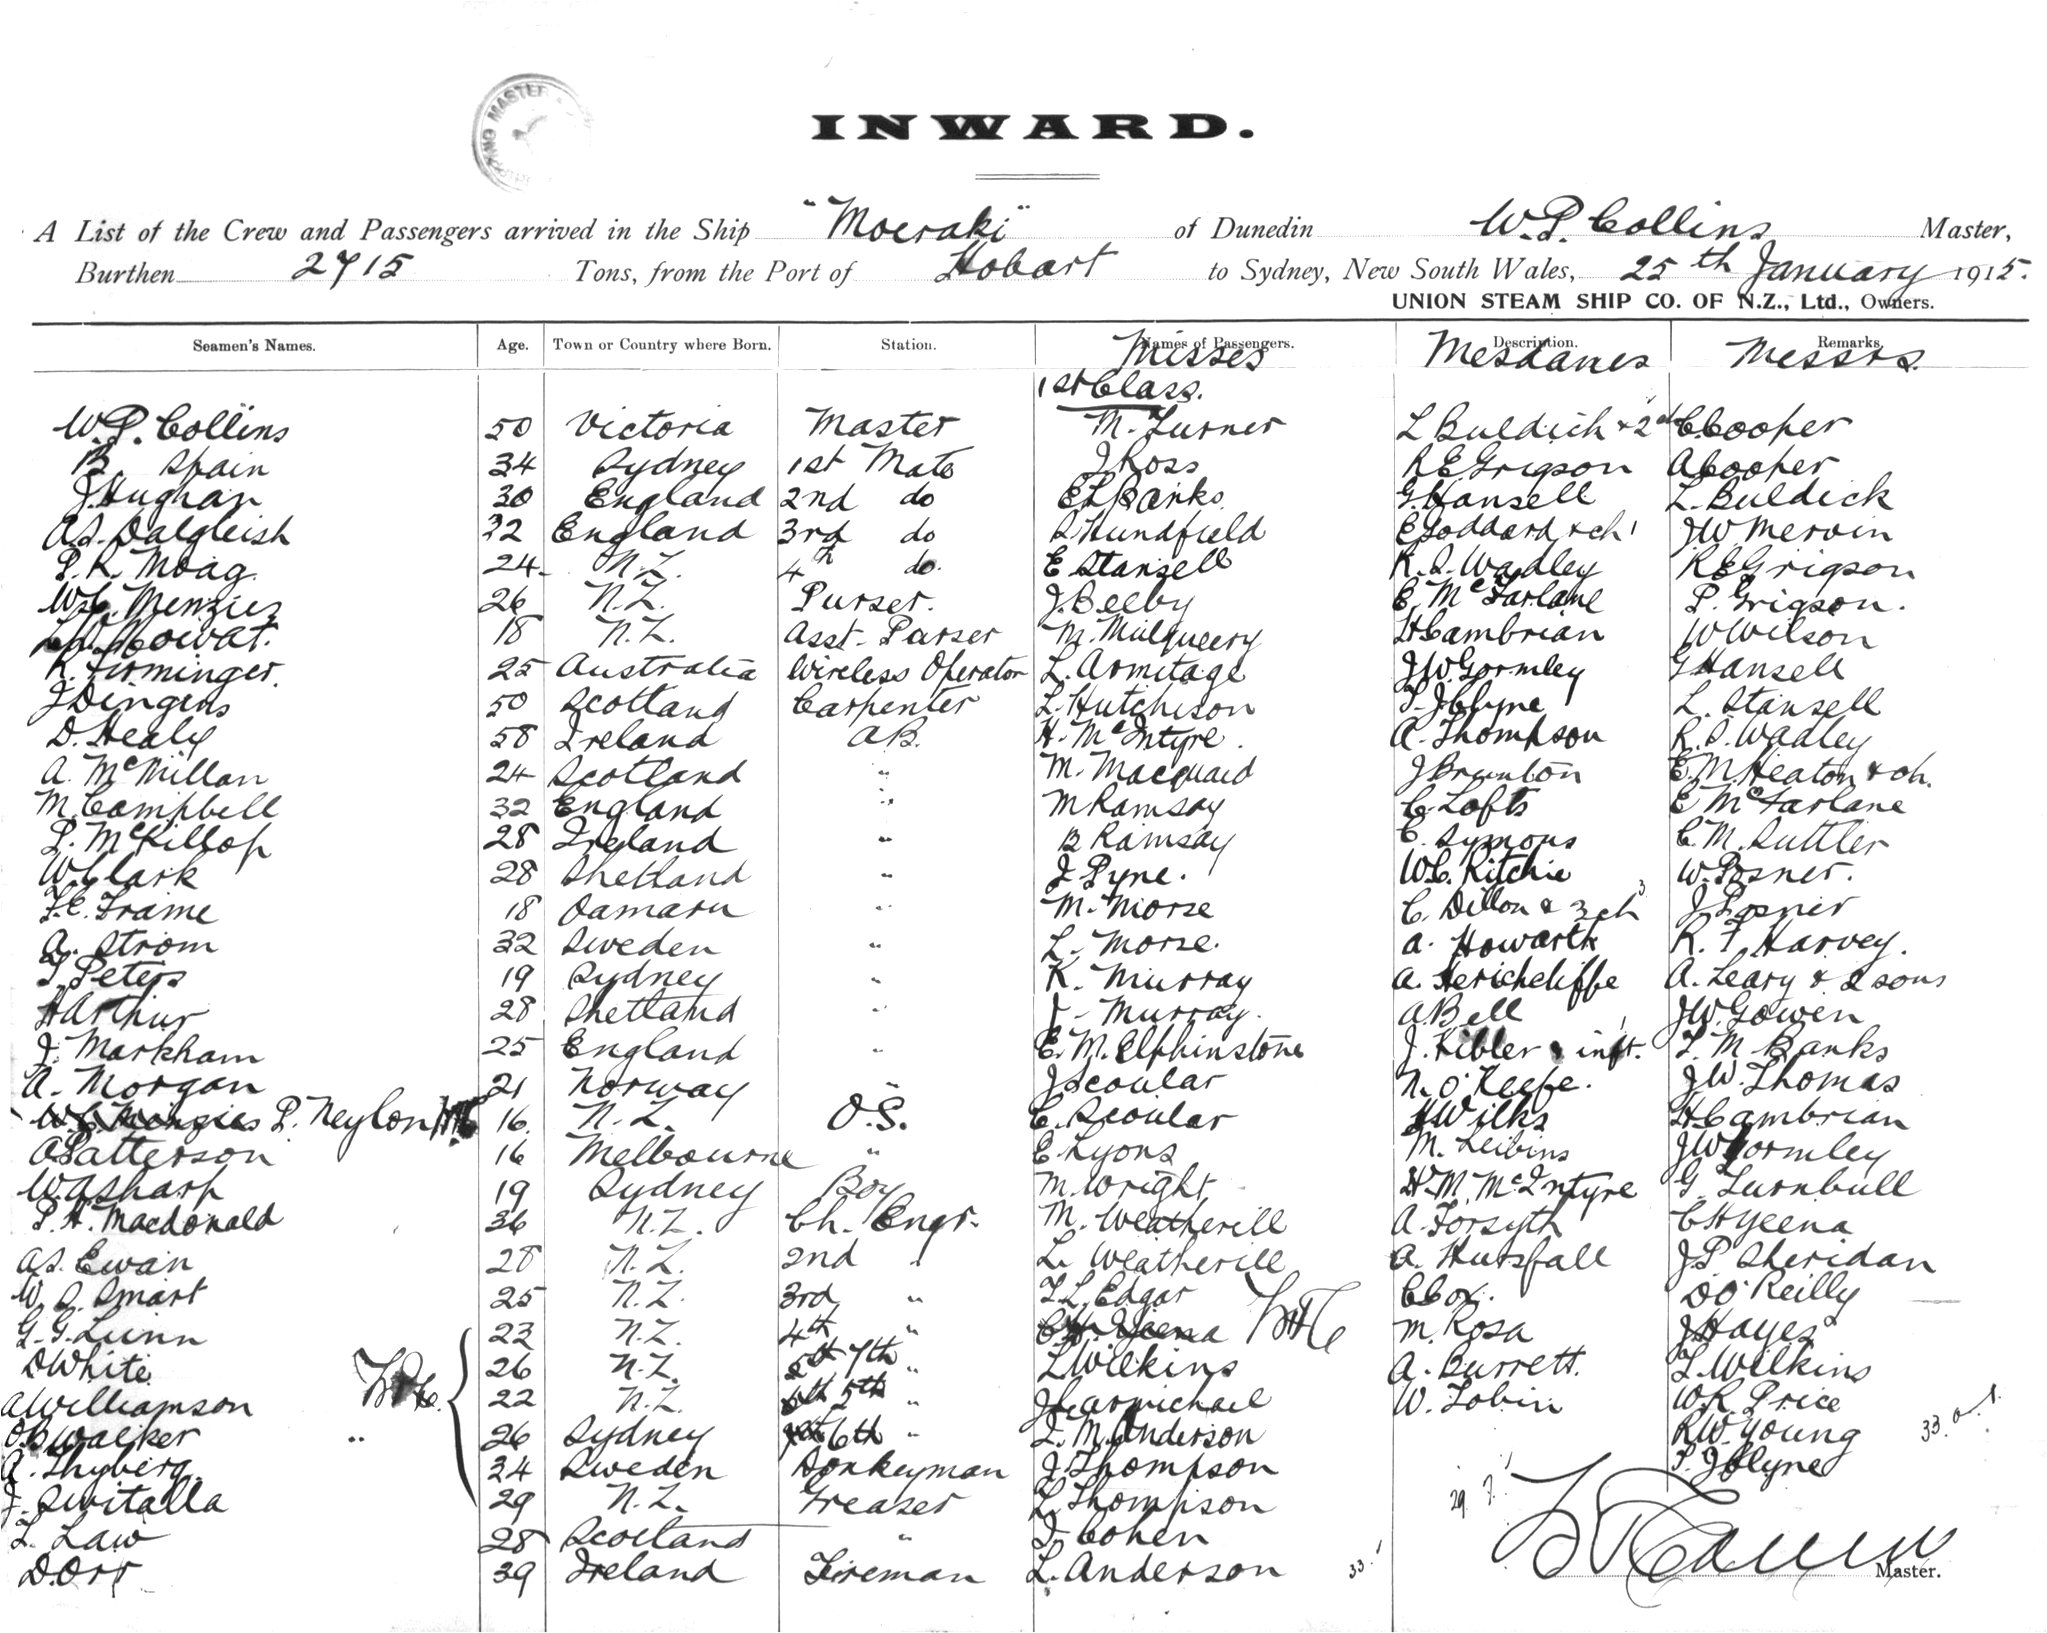 INWARD.
A List of the Crew and Passengers arrived in the Ship "Moeraki" of Dunedin W. P. Collins Master,
Burthen 2715 Tons, from the Port of Hobart to Sydney, New South Wales, 25th January 1915.
UNION STEAM SHIP CO. OF N.Z., Ltd., Owners.
Seamen's Names. Age. Town or Country where Born. Station. Names of Passengers. Description. Remarks.
Misses Mesdames Messrs.
1st Class.
W. P. Collins 50 Victoria Master M. Turner L Buldich & 2 C. Cooper
B. Spain 34 Sydney 1st Mate J Ross R E Grigson A Cooper
J. Hughan 30 England 2nd do E L Banks G. Hansell L. Buldick
A. S. Dalgleish 32 England 3rd do S Hundfield E Goddard & ch 1 J W Mervin
P. K. Moag. 24 N.Z. 4th do. E Stansell R. S. Wadley R E Grigson
W. C. Menzies 26 N.Z. Purser. J. Beeby E. McFarlane P. Grigson.
Mowat. 18 N.Z. Asst. Purser M. Mulqueery H Cambrian W Wilson
R. Firminger. 25 Australia Wireless Operator L. Armitage J W Gormley G Hansell
J Dingens 50 Scotland Carpenter L. Hutchison P. J Clyne L. Stansell
D. Healy 58 Ireland A.B. H. McIntyre. A. Thompson R. S. Wadley
A. McMillan 24 Scotland " M. Macquaid J Brunton E. M. Heaton & ch.
M. Campbell 32 England " M Ramsay C Lofts E McFarlane
P. McKillop 28 Ireland " B Ramsay E. Symons C. M. Suttler
W. Clark 28 Shetland " J Pyne. W. C. Ritchie W. Posner.
F. C. Frame 18 Oamaru " M. Morse C. Dillon & 3 ch 3 J Posner
A. Strom 32 Sweden " L. Morse. A. Howarth R. T. Harvey.
T. Peters 19 Sydney " K. Murray A. Herichcliffe A. Leary & 2 sons
H Arthur 28 Shetland " J - Murray. A Bell J. W. Gowen
J. Markham 25 England " E. M. Elphinstone J. Kibler & inft. 1 L. M. Banks
A. Morgan 21 Norway " J Scoular N. O'Keefe. J W. Thomas
W. C. Menzies P. Neylon 16. N.Z. O.S. C. Scoular H Wilks H. Cambrian
A Patterson 16 Melbourne " E Lyons M. Leibins J W Gormley
W. A Sharp 19 Sydney Boy M. Wright H. M. McIntyre G Turnbull
P. H. Macdonald 36 N.Z. Ch. Engr. M. Weatherill A. Forsyth C H Yeena
A. S. Ewan 28 N.Z. 2nd " L. Weatherill A. Hursfall J P Sheridan
W. S. Smart 25 N.Z. 3rd " L. L. Edgar C Cox. D O'Reilly
G. G. Lunn 23 N.Z. 4th " C H. Yeena M. Rosa J Hayes
D White 26 N.Z. 7th " L Wilkins A. Burrett. L. Wilkins
A Williamson 22 N.Z. 5th " J Carmichael W. Tobin W. R. Price
O. B Walker " 26 Sydney 6th " L. M. Anderson R W. Young 33.
A. Thyberg. 34 Sweden Donkeyman J. Thompson P. J Clyne
J. Switalla 29 N.Z. Greaser L. Thompson 29.
L. Law 28 Scotland " J. Cohen
D. Orr 39 Ireland Fireman L. Anderson 33. Master.